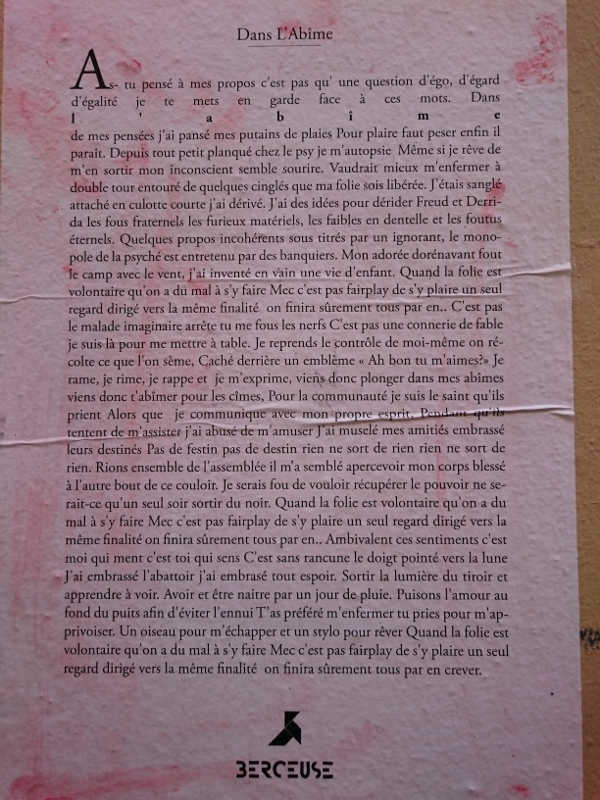 Dans L'Abîme
As- tu pensé à mes propos c'est pas qu' une question d'égo, d'égard
d'égalité je te mets en garde face à ces mots. Dans
l ' a b î m e
de mes pensées j'ai pansé mes putains de plaies Pour plaire faut peser enfin il
paraît. Depuis tout petit planqué chez le psy je m'autopsie Même si je rêve de
m'en sortir mon inconscient semble sourire. Vaudrait mieux m'enfermer à
double tour entouré de quelques cinglés que ma folie sois libérée. J'étais sanglé
attaché en culotte courte j'ai dérivé. J'ai des idées pour dérider Freud et Derri-
da les fous fraternels les furieux matériels, les faibles en dentelle et les foutus
éternels. Quelques propos incohérents sous titrés par un ignorant, le mono-
pole de la psyché est entretenu par des banquiers. Mon adorée dorénavant fout
le camp avec le vent, j'ai inventé en vain une vie d'enfant. Quand la folie est
volontaire qu'on a du mal à s'y faire Mec c'est pas fairplay de s'y plaire un seul
regard dirigé vers la même finalité on finira sûrement tous par en.. C'est pas
le malade imaginaire arrête tu me fous les nerfs C'est pas une connerie de fable
je suis là pour me mettre à table. Je reprends le contrôle de moi-même on ré-
colte ce que l'on sème, Caché derrière un emblème « Ah bon tu m'aimes?» Je
rame, je rime, je rappe et je m'exprime, viens donc plonger dans mes abîmes
viens donc t'abîmer pour les cîmes, Pour la communauté je suis le saint qu'ils
prient Alors que je communique avec mon propre esprit. Pendant qu'ils
tentent de m'assister j'ai abusé de m'amuser J'ai muselé mes amitiés embrassé
leurs destinés Pas de festin pas de destin rien ne sort de rien rien ne sort de
rien. Rions ensemble de l'assemblée il m'a semblé apercevoir mon corps blessé
à l'autre bout de ce couloir. Je serais fou de vouloir récupérer le pouvoir ne se-
rait-ce qu'un seul soir sortir du noir. Quand la folie est volontaire qu'on a du
mal à s'y faire Mec c'est pas fairplay de s'y plaire un seul regard dirigé vers la
même finalité on finira sûrement tous par en.. Ambivalent ces sentiments c'est
moi qui ment c'est toi qui sens C'est sans rancune le doigt pointé vers la lune
J'ai embrassé l'abattoir j'ai embrasé tout espoir. Sortir la lumière du tiroir et
apprendre à voir. Avoir et être naitre par un jour de pluie. Puisons l'amour au
fond du puits afin d'éviter l'ennui T'as préféré m'enfermer tu pries pour m'ap-
privoiser. Un oiseau pour m'échapper et un stylo pour rêver Quand la folie est
volontaire qu'on a du mal à s'y faire Mec c'est pas fairplay de s'y plaire un seul
regard dirigé vers la même finalité on finira sûrement tous par en crever.
BERCEUSE